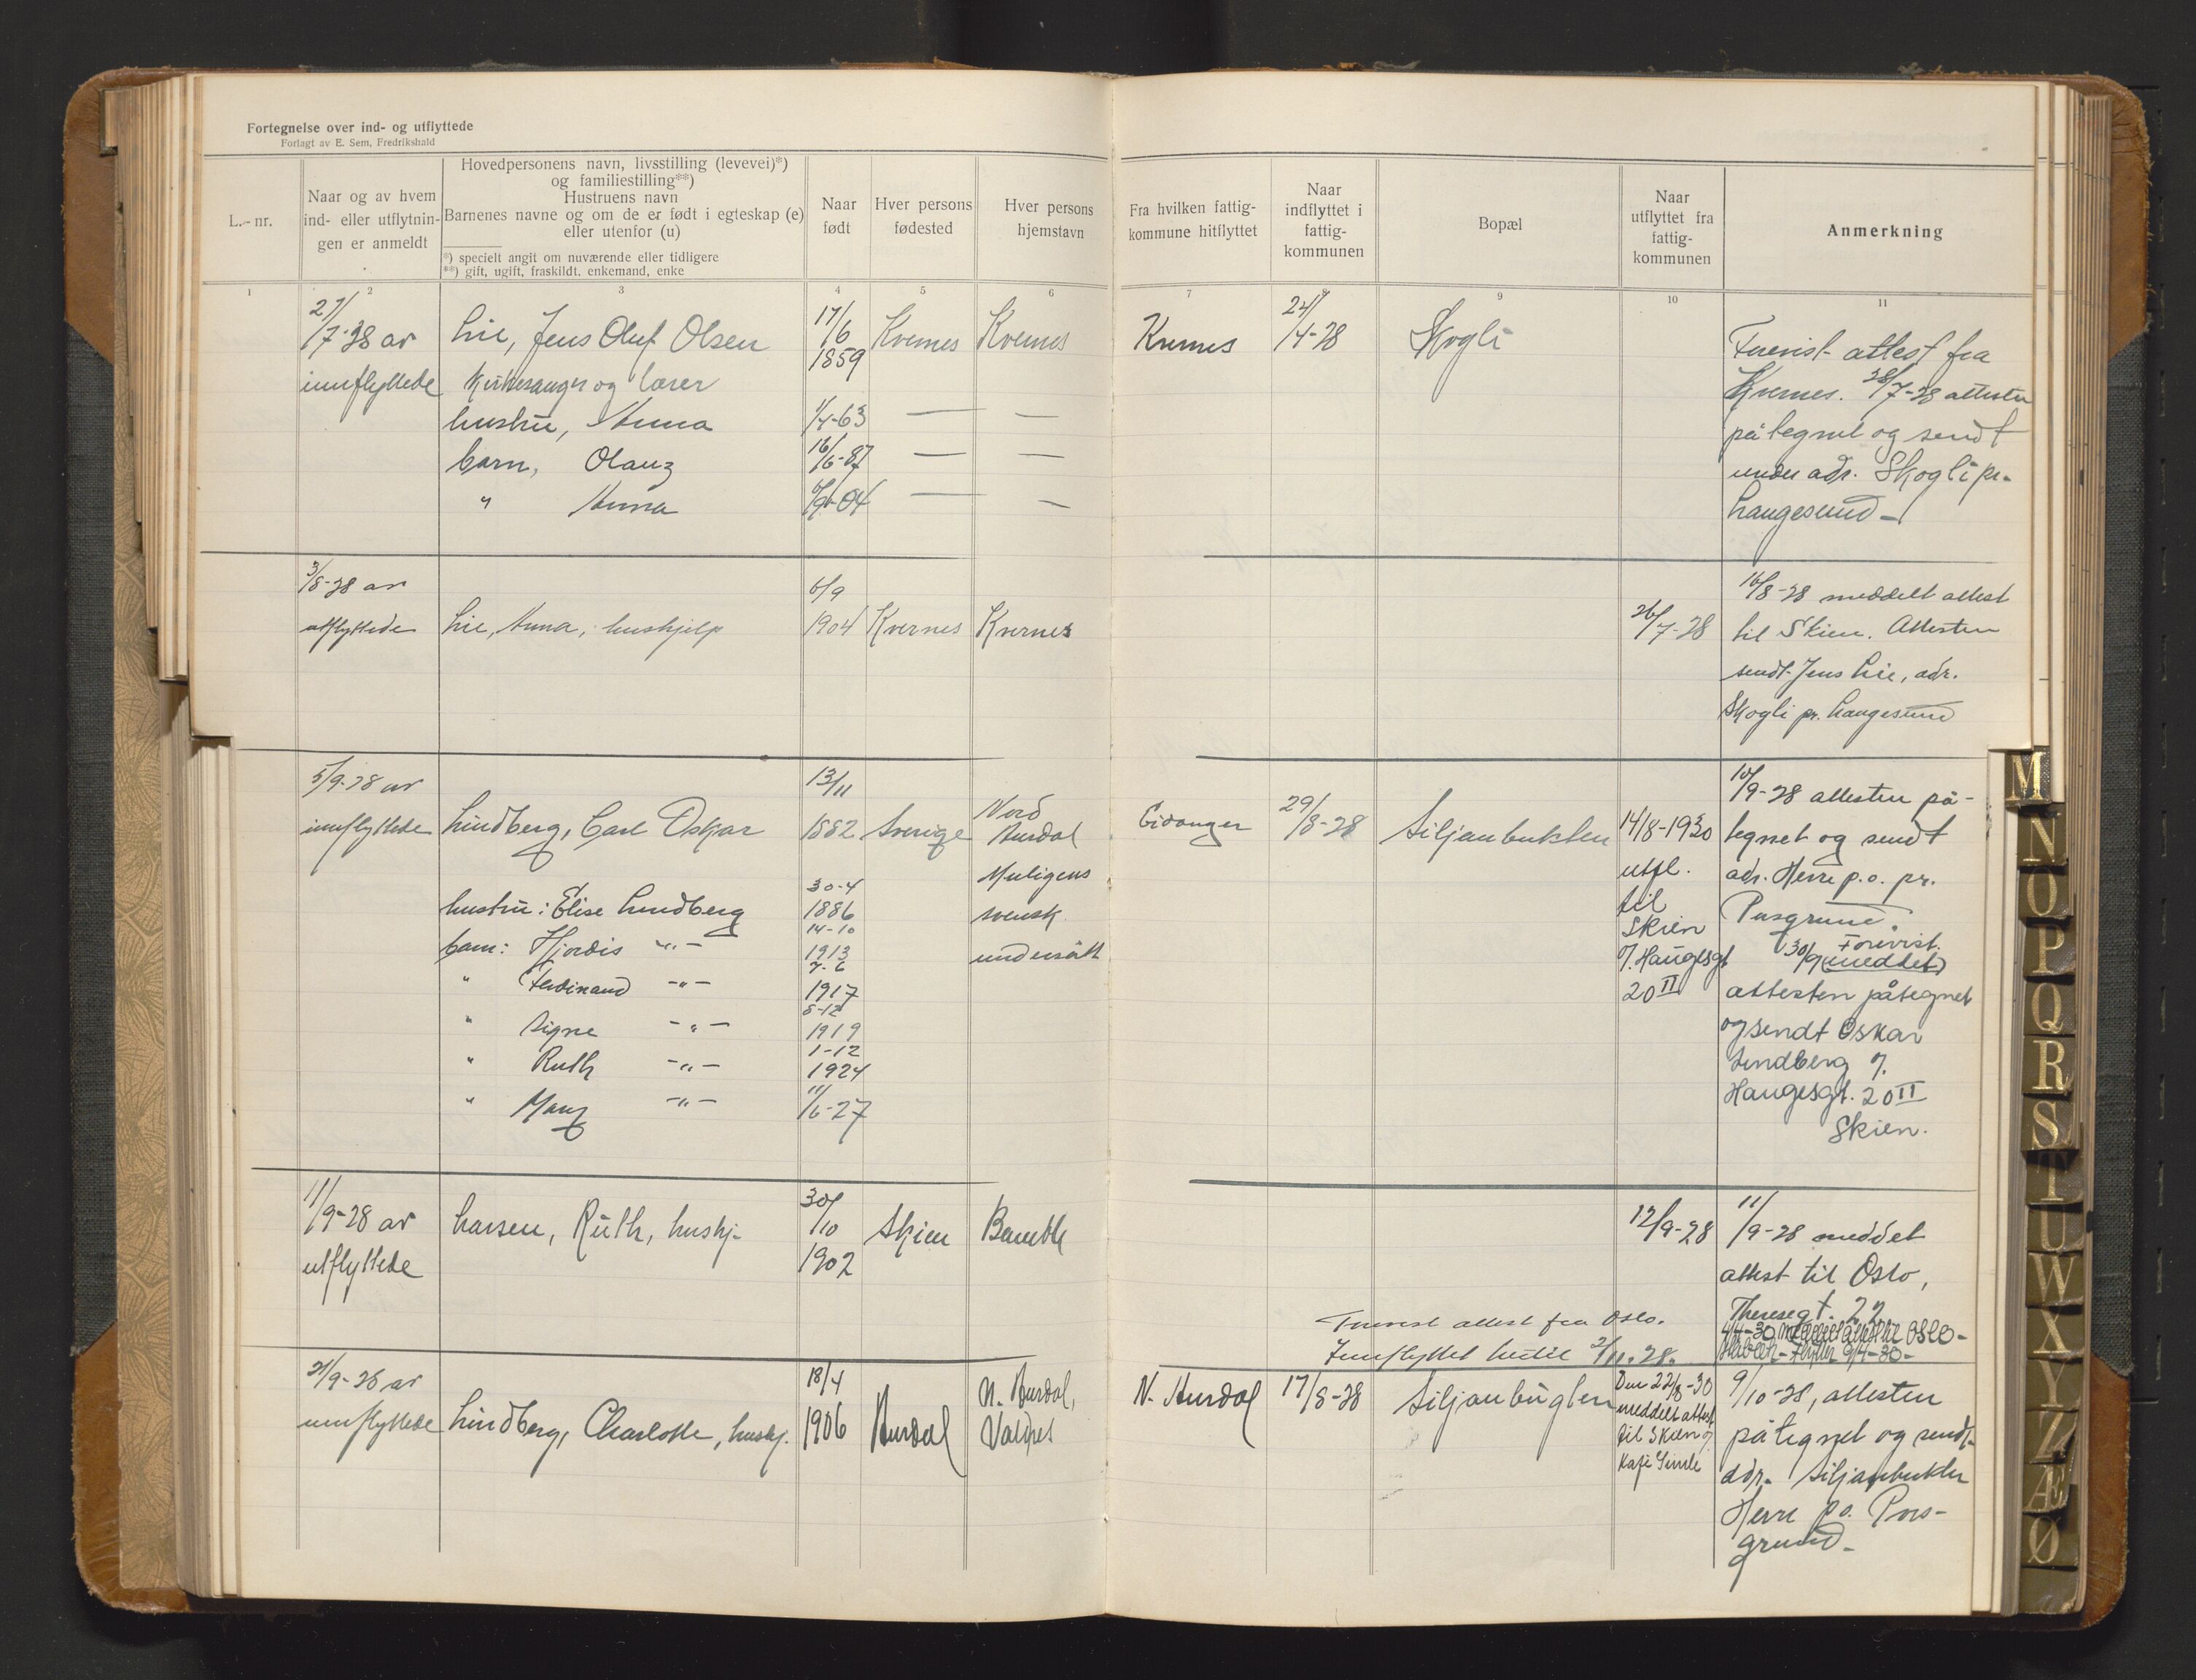 Fortegnelse over ind- og utflyttede
Forlagt av E. Sem, Fredrikshald
L.- nr.
Naar og av hvem
ind- eller utflytnin-
gen er anmeldt
Hovedpersonens navn, livsstilling (levevei)*)
og familiestilling**)
Hustruens navn
Barnenes navne og om de er født i egteskap (e)
eller utenfor (u)
*) specielt angit om nuværende eller tidligere
**) gift, ugift, fraskildt. enkemand, enke
Naar
født
Hver persons
fødested
Hver persons
hjemstavn
Fra hvilken fattig-
kommune hitflyttet
Naar
indflyttet i
fattig-
kommunen
Bopæl
Naar
utflyttet fra
fattig-
kommunen
Anmerkning
1 2 3 4 5 6 7 8 9 10 11
27/7-28 av
innflyttede
Lie, Jens Oluf Olsen
Kirkesanger og lærer
hustru, Anna
barn, Olauz
" Anna
17/6
1859
1/4-63
16/6-87
6/9-04
Kvernes
Kvernes
Kvernes
24/4-28
Skogli
Forevist attest fra
Kvernes. 28/7-28 attesten
påtegnet og sendt
under adr. Skogli pr.
Langesund -
3/8-28 av
utflyttede
Lie, Anna, huskjelp
6/9
1904
Kvernes
Kvernes
26/7-28
16/8-28 meddelt attest
til Skien. Attesten
sendt Jens Lie, adr.
Skogli pr. Langesund
5/9-28 av
innflyttede
Lindberg, Carl Oskar
hustru: Elise Lindberg
barn: Hjordis -"-
" Ferdinand -"-
" Signe -"-
" Ruth -"-
" Mary -"-
13/11
1882
30-4
1886
14-10
1913
7-6
1917
8-12
1919
1-12
1924
11/6-27
Sverige
Nord
Aurdal
Muligens
svensk
undersått
Eidanger
29/8-28
Siljanbukten
14/8-1930
utfl.
til
Skien
J. Haugesgt
20 II
10/9-28 attesten på-
tegnet og sendt
adr. Herre p.o. pr.
Porsgrund.
Forevist
30/9 (meddelt)
attesten påtegnet
og sendt Oskar
Lindberg J.
Haugesgt. 20 II
Skien.
11/9-28 av
utflyttede
Larsen, Ruth, huskj.
30/10
1902
Skien
Bamble
12/9-28
11/9-28 meddelt
attest til Oslo,
Theresegt. 22
4/4-30 meddelt attest til OSLO-
Flytter 9/4-30-
Forevist attest fra Oslo.
Innflyttet hertil 2/11-28.
21/9-28 av
innflyttede
Lindberg, Charlotte, huskj.
18/4
1906
Aurdal
N. Aurdal,
Valdres
N. Aurdal
17/8-28
Siljanbugten
Den 22/8-30
meddelt attest
til Skien
Kafe Simle
9/10-28, attesten
påtegnet og sendt
adr. Siljanbukten
Herre p.o. Pors-
grund -
M
N
O
P
Q
R
S
T
U
W
X
Y
Z
Æ
Ø